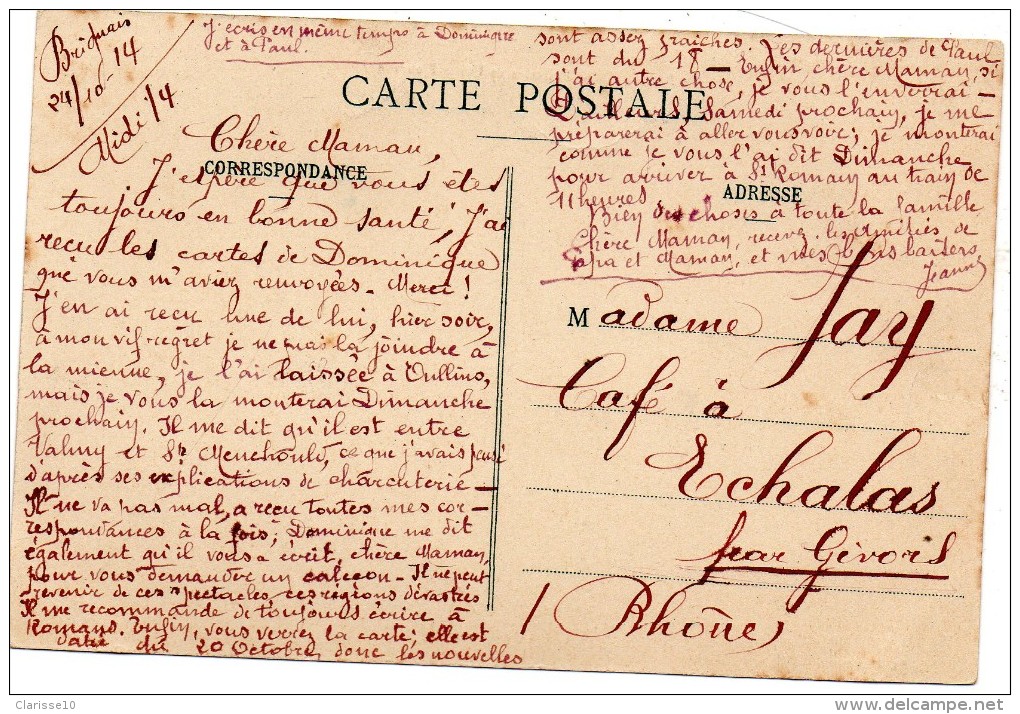 Brignais
24/10 14
Midi 1/4
J'ecris en même temps à Dominique
et à Paul.
CARTE POSTALE
CORRESPONDANCE
Chère Maman,
J'espère que vous êtes
toujours en bonne santé, J'ai
reçu les cartes de Dominique
que vous m'aviez renvoyées. Merci!
J'en ai reçu une de lui, hier soir,
à mon vif regret je ne puis la joindre à
la mienne, je l'ai laissée à Oullins,
mais je vous la monterai Dimanche
prochain. Il me dit qu'il est entre
Valmy et Ste Menehould, ce que j'avais pensé
d'après ses explications de charcuterie —
Il ne va pas mal, a reçu toutes mes cor-
respondances à la fois; Dominique me dit
également qu'il vous a écrit, chère Maman,
pour vous demander un caleçon — Il ne peut
revenir de ces spectacles, ces régions dévastées
Il me recommande de toujours écrire à
Romans. Enfin, vous verrez la carte; elle est
datée du 20 Octobre, donc les nouvelles
sont assez fraîches. Les dernières de Paul
sont du 18 — Enfin, chère Maman, si
j'ai autre chose, je vous l'enverrai —
D'ailleurs, Samedi prochain, je me
préparerai à aller vous voir; je monterai
comme je vous l'ai dit Dimanche
pour arriver à St Romain au train de
11 heures
ADRESSE
Bien des choses à toute la famille
Chère Maman, recevez les amitiés de
Papa et Maman, et mes bons baisers
Jeanne
Madame Jay
Café à
Echalas
par Givors
Rhône
Clarisse10
www.delcampe.net